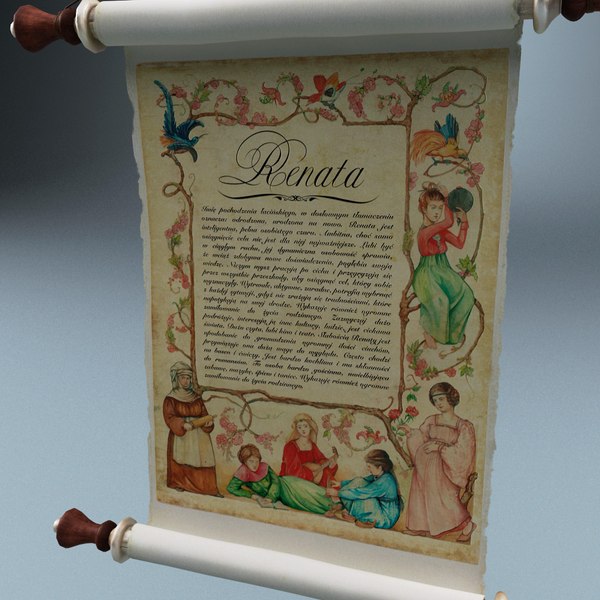 Renata
Imię pochodzenia łacińskiego, w dosłownym tłumaczeniu
oznacza: odrodzona, urodzona na nowo. Renata jest
inteligentna, pełna osobistego czaru. Ambitna, choć sama
osiągnięcie celu nie jest dla niej najważniejsze. Lubi być
w ciągłym ruchu, jej dynamiczna osobowość sprawia,
że wciąż zdobywa nowe doświadczenia, pogłębia swoją
wiedzę. Niczym mysz pracują po cichu i przegryzają się
przez wszystkie przeszkody, aby osiągnąć cel, który sobie
wyznaczyły. Wytrwałe, aktywne, zaradne, potrafią wybrnąć
z każdej sytuacji, gdyż nie zrażają się trudnościami, które
napotykają na swej drodze. Wykazuje również ogromne
zamiłowanie do życia rodzinnego. Zazwyczaj dużo
podróżuje, interesują ją inne kultury, ludzie, jest ciekawa
świata. Dużo czyta, lubi kino i teatr. Słabością Renaty jest
upodobanie do gromadzenia ogromnej ilości ciuchów,
przywiązuje ona dużą wagę do wyglądu. Często chodzi
na basen i ćwiczy. Jest bardzo kochliwa i ma skłonności
do romansów. To osoba bardzo gościnna, uwielbiająca
zabawę, muzykę, śpiew i taniec. Wykazuje również ogromne
zamiłowanie do życia rodzinnego.